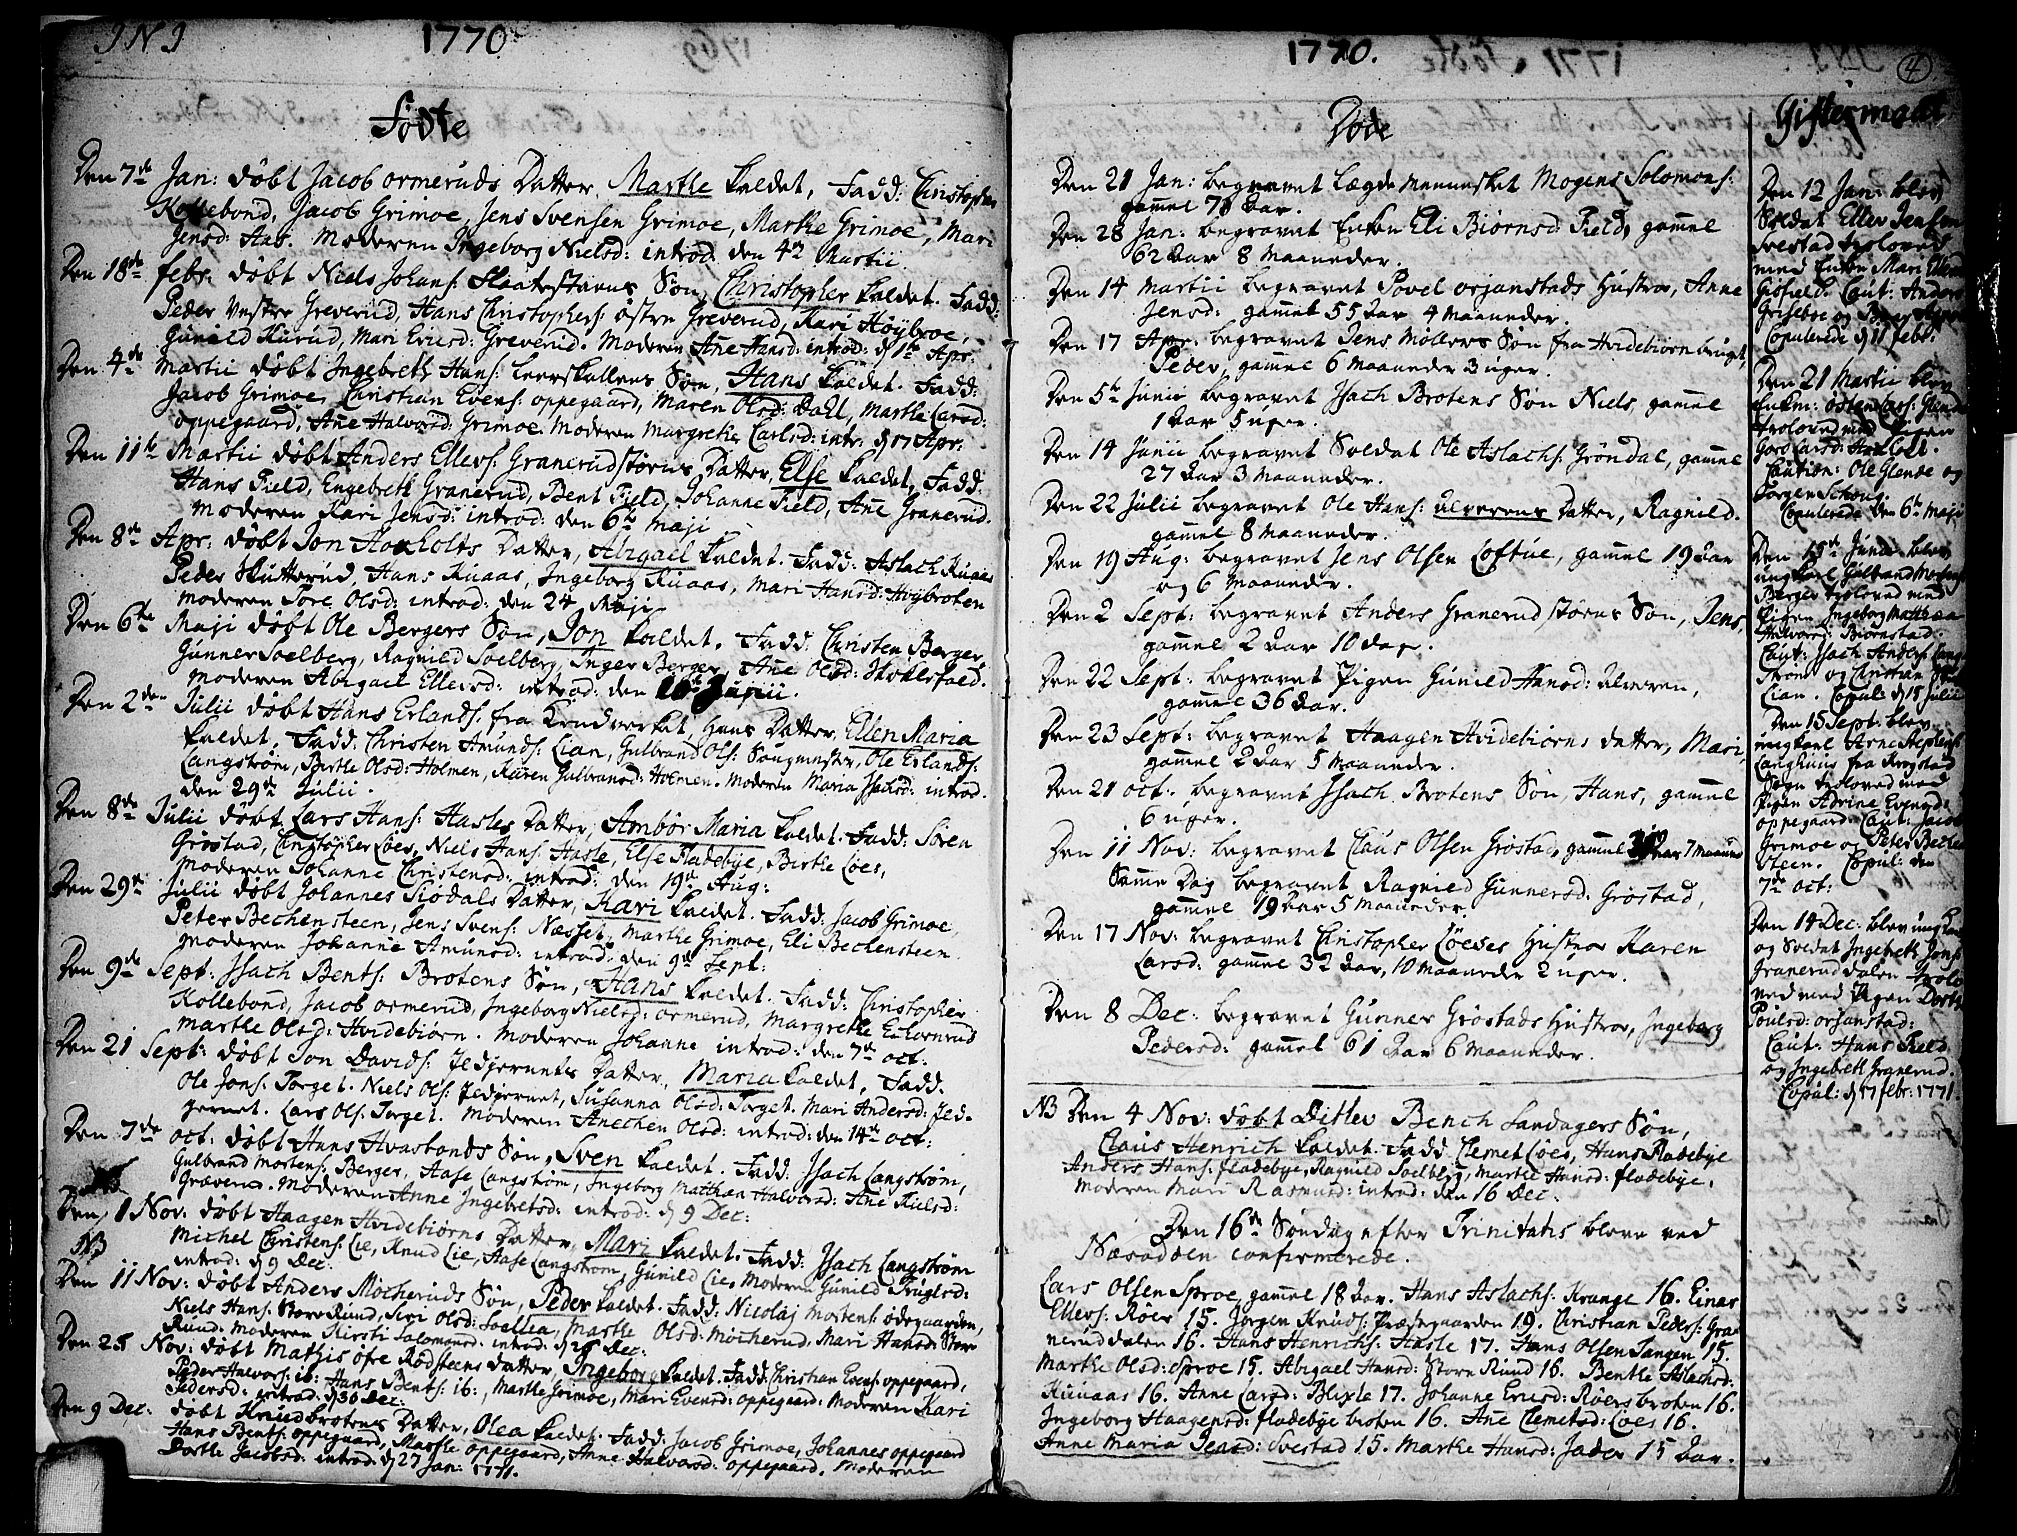 I N I 1770
Fødte
Den 7de Jan: døbt Jacob Ormeruds Datter, Marthe kaldet, Fadd: Christopher
Kollebond, Jacob Grimoe, Jens Svensen Grimoe, Marthe Grimoe, Mari
Jensd: Aas. Moderen Ingeborg Nielsd: introd. den 4de Martii.
Den 18de febr. døbt Niels Johans: Slaatestøens Søn, Christopher kaldet. Fadd:
Peder Vestre Greverud, Hans Christophers: østre Greverud, Kari Höybroe,
Gunild Kurud, Mari Ericsd: Greverud. Moderen Ane Hansd: introd: d 1te Apr:
Den 4de Martii døbt Ingebreth Hans: Leerskallens Søn, Hans kaldet. Fadd:
Jacob Grimoe, Christian Evens: oppegaard, Maren Olsd: Dahl, Marthe Larsd:
oppegaard, Ane Halvorsd: Grimoe. Moderen Margrethe Carlsd: intr: d 17 Apr:
Den 11te Martii døbt Anders Ellevs: Granerudstøens Datter, Else kaldet, Fadd:
Hans Field, Engebreth Granerud, Bent Field, Johanne Field, Ane Granerud.
Moderen Kari Jensd: introd: den 6te Maji
Den 8de Apr. døbt Jon Houholts Datter, Abigael kaldet. Fadd: Aslach Kuaas
Peder Skutterud, Hans Kuaas, Ingeborg Kuaas, Mari Hansd: Høybroten
Moderen Tore Olsd: introd: den 24 Maji
Den 6te Maji døbt Ole Bergers Søn, Jon kaldet. Fadd: Christen Berger,
Gunner Soelberg, Ragnild Soelberg, Inger Berger, Ane Olsd: Skoklefald.
Moderen Abigael Ellevsd: introd: den 10te Junii.
Den 2de Julii døbt Hans Erlands: fra Krudverket, hans Datter, Ellen Maria
kaldet, Fadd: Christen Amunds: Lian, Gulbrand Ols: Sougmester, Ole Erlands:
Langstrøm, Birthe Olsd: Holmen, Karen Gulbransd: Holmen. Moderen Maria Isachsd: introd.
den 29de Julii.
Den 8de Julii døbt Lars Hans: Hasles Datter, Ambør Maria kaldet. Fadd: Søren
Grostad, Christopher Löes, Niels Hans: Hasle, Else Fladebye, Birthe Löes,
Moderen Johanne Christensd: introd: den 19de Aug:
Den 29de Julii døbt Johannes Siødals Datter, Kari kaldet. Fadd: Jacob Grimoe,
Peter Bechensteen, Jens Svens: Næsset, Marthe Grimoe, Eli Bechensteen.
Moderen Johanne Amundsd: introd: den 9de Sept:
Den 9de Sept: Isach Bents: Brotens Søn, Hans kaldet. Fadd: Christopher
Kollebond, Jacob ormerud, Ingeborg Nielsd: ormerud, Margrethe Eckornrud
Marthe Olsd: Hvidebiørn. Moderen Johanne introd: den 7de oct:
Den 21 Sept: døbt Jon Davids: Jedgernets Datter, Maria kaldet, Fadd.
Ole Jons: Torget. Niels Ols: Jedgernet, Susanna Olsd: Torget. Mari Andersd: Jed-
gernet. Lars Ols: Torget. Moderen Anechen Olsd: introd: den 14de oct:
Den 7de oct: døbt Hans Hvastands Søn, Sven kaldet. Fadd: Isach Langstrøm,
Gulbrand Mortens: Berger, Aase Langstrøm, Ingeborg Matthea Halvorsd: Ane Kielsd:
Græven. Moderen Anne Ingebretsd: introd: d 9 Dec:
Den 1 Nov: døbt Haagen Hvidebiørns Datter, Mari kaldet. Fadd: Isach Langstrøm
Michel Christens: Lie, Knud Lie, Aase Langstrøm, Gunild Lie, Moderen Gunild Truglsd:
NB introd: d 9 Dec:
Den 11 Nov: døbt Anders Mocheruds Søn, Peder kaldet. Fadd: Nicolaj Mortens: ødegaarden,
Niels Hans: Store Rud, Siri Olsd: Soellia, Marthe Olsd: Mocherud, Mari Hansd: Store
Rud. Moderen Kirsti Salomonsd: introd: d 26 Dec:
Den 25 Nov: døbt Mathis øfre Rødsteens Datter, Ingeborg kaldet. Fadd: Christian Evens: oppegaard,
Peder Halvors: ib: Hans Bents: ib:, Marthe Grimoe, Mari Evensd: oppegaard: Moderen Kari
Pedersd: introd: d 30 Dec:
Den 9 Dec: døbt Knud brotenes Datter, Olea kaldet. Fadd: Jacob Grimoe, Johannes oppegaard
Hans Bents: oppegaard, Marthe oppegaard, Anne Halvorsd: oppegaard. Moderen
Dorthe Jacobsd: introd: d 27 Jan: 1771.
1770.
4
Døde
Den 21 Jan: begravet Lægde Mennesket Mogens Solomons:
gammel 78 Aar.
Den 28 Jan: begravet Enken Eli Biørnsd Field, gammel
62 Aar 8 Maaneder.
Den 14 Martii begravet Povel orjanstads Hustroe, Anne
Jensd: gammel 55 Aar 4 Maaneder.
Den 17 Apr: begravet Jens Møllers Søn fra Hvidebiørnbruget,
Peder, gammel 6 Maaneder 3 uger.
Den 5te Junii begravet Isach Brotens Søn Niels, gammel
1 Aar 5 uger.
Den 14 Junii begravet Soldat Ole Aslachs: Grøndal, gammel
27 Aar 3 Maaneder.
Den 22 Julii begravet Ole Hans: Ulverens Datter, Ragnild.
gammel 8 Maaneder.
Den 19 Aug: begravet Jens Olsen Loftue, gammel 19 Aar
og 6 Maaneder.
Den 2 Sept: begravet Anders Granerudstøens Søn, Jens,
gammel 2 Aar 10 dage.
Den 22 Sept: begravet Pigen Gunild Hansd: Ulveren,
gammel 36 Aar.
Den 23 Sept: begravet Haagen Hvidebiørns Datter, Mari,
gammel 2 Aar 5 Maaneder.
Den 21 oct: begravet Isach Brotens Søn, Hans, gammel
6 uger.
Den 11 Nov: begravet Claus Olsen Grostad, gammel Aar 7 Maaned
Samme Dag begravet Ragnild Gunnersd: Grostad,
gammel 19 Aar 5 Maaneder.
Den 17 Nov: begravet Christopher Löeses Hustroe Karen
Larsd: gammel 32 Aar, 10 Maaneder 2 uger.
Den 8 Dec: begravet Gunner Grostads Hustroe, Ingeborg
Pedersd: gammel 61 Aar 6 Maaneder.
NB Den 4 Nov: døbt Ditlev Bench Landagers Søn,
Claus Henrich kaldet. Fadd Clemet Löes, Hans Fladebye
Anders Hans: fladebye, Ragnild Soelberg, Marthe Hansd: fladebye.
Moderen Mari Rasmusd: introd: den 16 Dec:
Den 16de Søndag efter Trinitatis bleve ved
Næsodden confirmerede.
Lars Olsen Sproe, gammel 18 Aar. Hans Aslachs: Krange 16. Einar
Ellevs: Røer 15. Jørgen Knuds: Præstegaarden 19. Christian Peders: Gra-
neruddalen 16. Hans Henrichs: Hasle 17. Hans Olsen Tangen 15.
Marthe Olsd: Sproe 15. Abigael Hansd: Store Rud 16. Benthe Aslachsd:
Kuuaas 16. Anne Larsd: Blixle 17. Johanne Ericsd: Røers broten 16.
Ingeborg Haagensd: fladebye broten 16. Ane Clemetsd: Löes 16.
Anne Maria Jensd: Svestad 15. Marthe Hansd: Jader 15 Aar.
Giftermaal
Den 12 Jan: blev
Soldat Ellev Jensen
Svestad trolovet
med Enken Mari
Giøfield. Caut: Anders
Grisebroe og
Copulerede d 11 febr:
Den 21 Martii blev
Enkm: østen Lars: Glende
trolovet med Pigen
Goro Larsd: Houholt.
Caution: Ole Glende og
Torgen Schoug.
Copulerede den 6te Maji
Den 15de Junii blev
ungkarl Gulbrand Mortens:
Berger trolovet med
Pigen Ingeborg Matthea
Halvorsd: Biørnstad.
Caut: Isach Anders: Lang-
strøm og Christian
Lian. Copul: d 15 Julii
Den 15 Sept: blev
ungkarl Arne Stephens:
Langhuus fra Krogstad
Sogn trolovet med
Pigen Adrine Evensd:
oppegaard. Caut: Jacob
Grimoe og Peter Bechen
steen. Copul: den
7de oct:
Den 14 Dec: blev ungkarl
og Soldat Ingebreth Jons:
Graneruddalen trolo-
vet med Pigen Dorthe
Poulsd: orjanstad:
Caut: Hans Field
og Ingebreth Granerud.
Copul: d 17 febr: 1771.